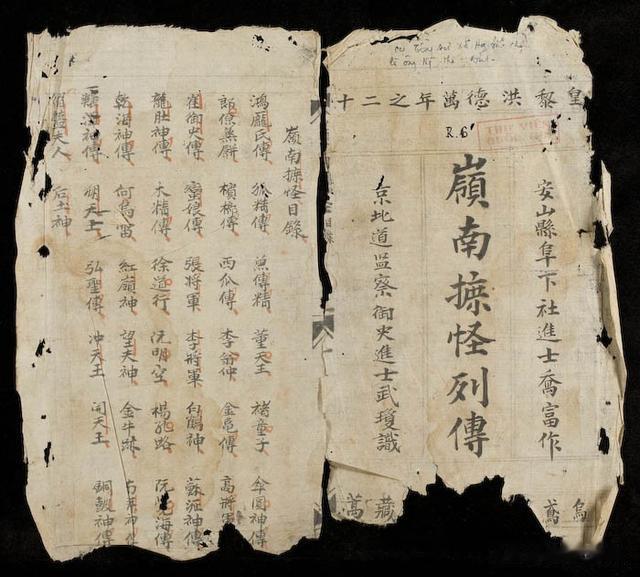 皇黎洪德萬年之二十
R.6
THƯ VIỆN
安山縣阜下社進士喬富作
嶺南摭怪列傳
京北道監察御史進士武瓊識
烏鳶 藏
嶺南摭怪目錄
鴻龐氏傳 狐精傳 魚傳精 董天王 褚童子 傘圓神傳
郎僚蒸餅 檳榔傳 西瓜傳 李翁仲 金龜傳 高將軍
崔御史傳 蠻娘傳 張將軍 李將軍 白鶴神 蘇瀝神傳
龍肚神傳 木精傳 徐道行 阮明空 楊孔路 阮海傳
乾海神傳 何烏雷 紅嶺神 望夫神 金牛跡
神傳 朔天王 弘聖傳 冲天王 開天王 銅鼓神傳
夫人 后土神